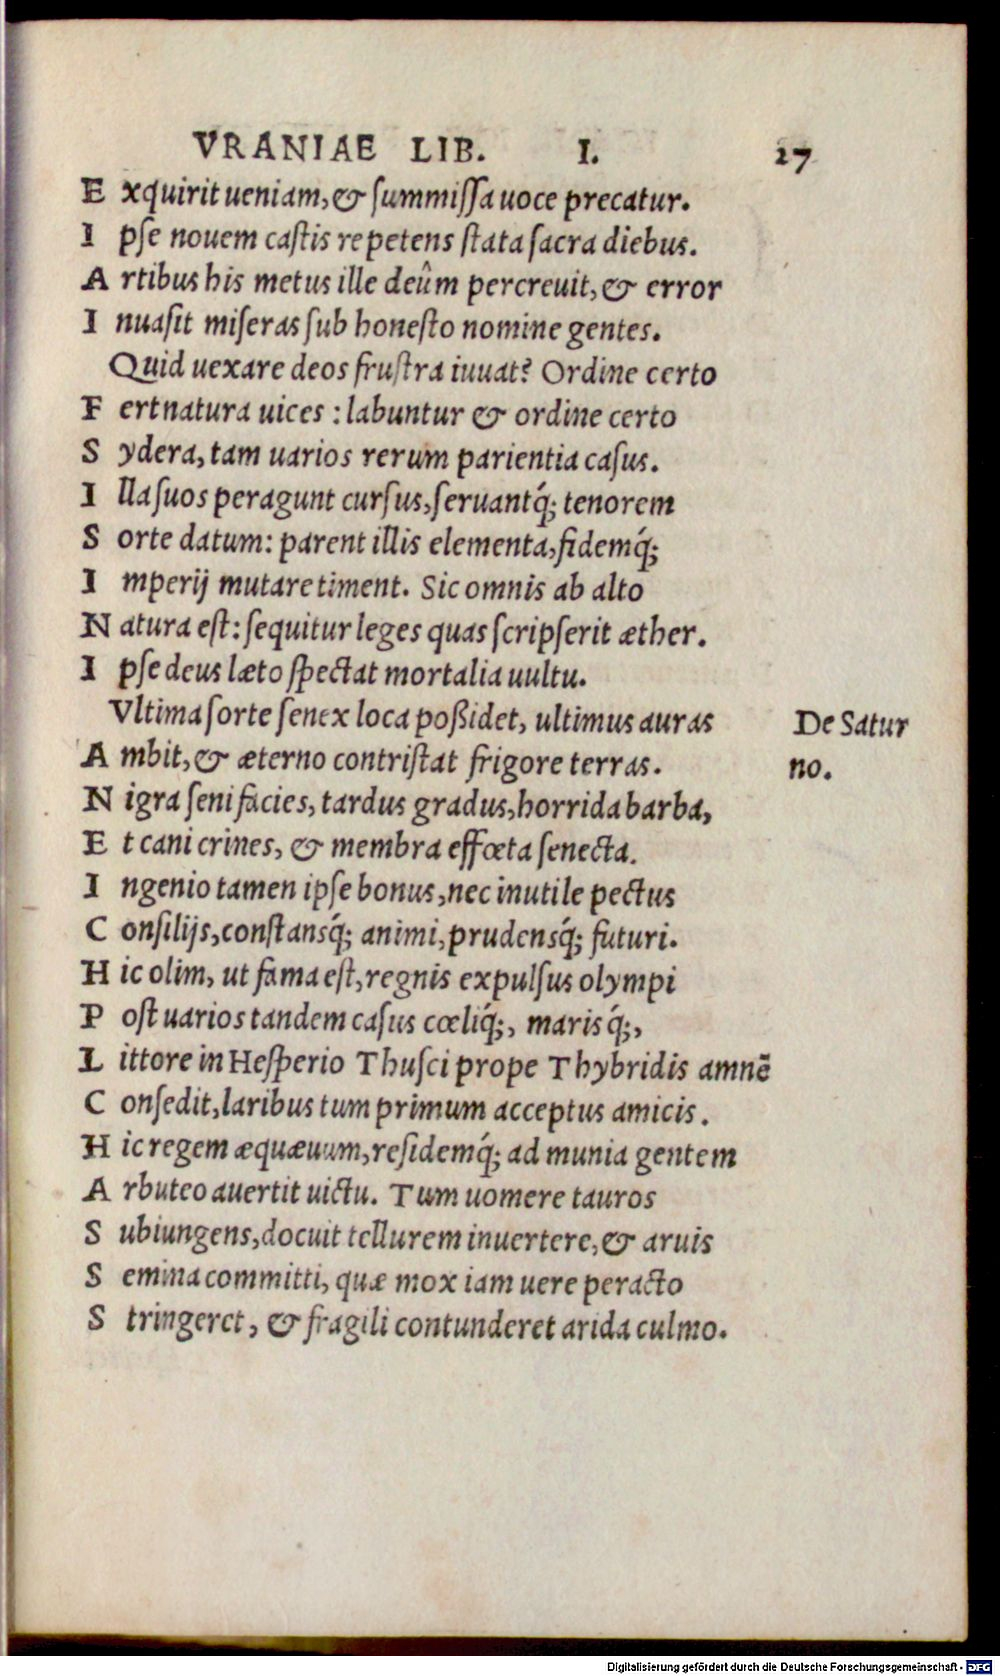 VRANIAE LIB. I. 27
E xquirit ueniam, & ſummiſſa uoce precatur.
I pſe nouem caſtis repetens ſtata ſacra diebus.
A rtibus his metus ille deûm percreuit, & error
I nuaſit miſeras ſub honeſto nomine gentes.
Quid uexare deos fruſtra iuuat? Ordine certo
F ert natura uices : labuntur & ordine certo
S ydera, tam uarios rerum parientia caſus.
I lla ſuos peragunt curſus, ſeruantq́; tenorem
S orte datum: parent illis elementa, fidemq́;
I mperij mutare timent. Sic omnis ab alto
N atura eſt: ſequitur leges quas ſcripſerit æther.
I pſe deus læto ſpectat mortalia uultu.
Vltima ſorte ſenex loca poßidet, ultimus auras
De Satur
A mbit, & æterno contriſtat frigore terras.
no.
N igra ſeni facies, tardus gradus, horrida barba,
E t cani crines, & membra effœta ſenecta.
I ngenio tamen ipſe bonus, nec inutile pectus
C onſilijs, conſtansq́; animi, prudensq́; futuri.
H ic olim, ut fama eſt, regnis expulſus olympi
P oſt uarios tandem caſus cœliq́;, marisq́;,
L ittore in Heſperio Thuſci prope Thybridis amnē
C onſedit, laribus tum primum acceptus amicis.
H ic regem æquæuum, reſidemq́; ad munia gentem
A rbuteo auertit uictu. Tum uomere tauros
S ubiungens, docuit tellurem inuertere, & aruis
S emina committi, quæ mox iam uere peracto
S tringeret, & fragili contunderet arida culmo.
Digitalisierung gefördert durch die Deutsche Forschungsgemeinschaft - DFG